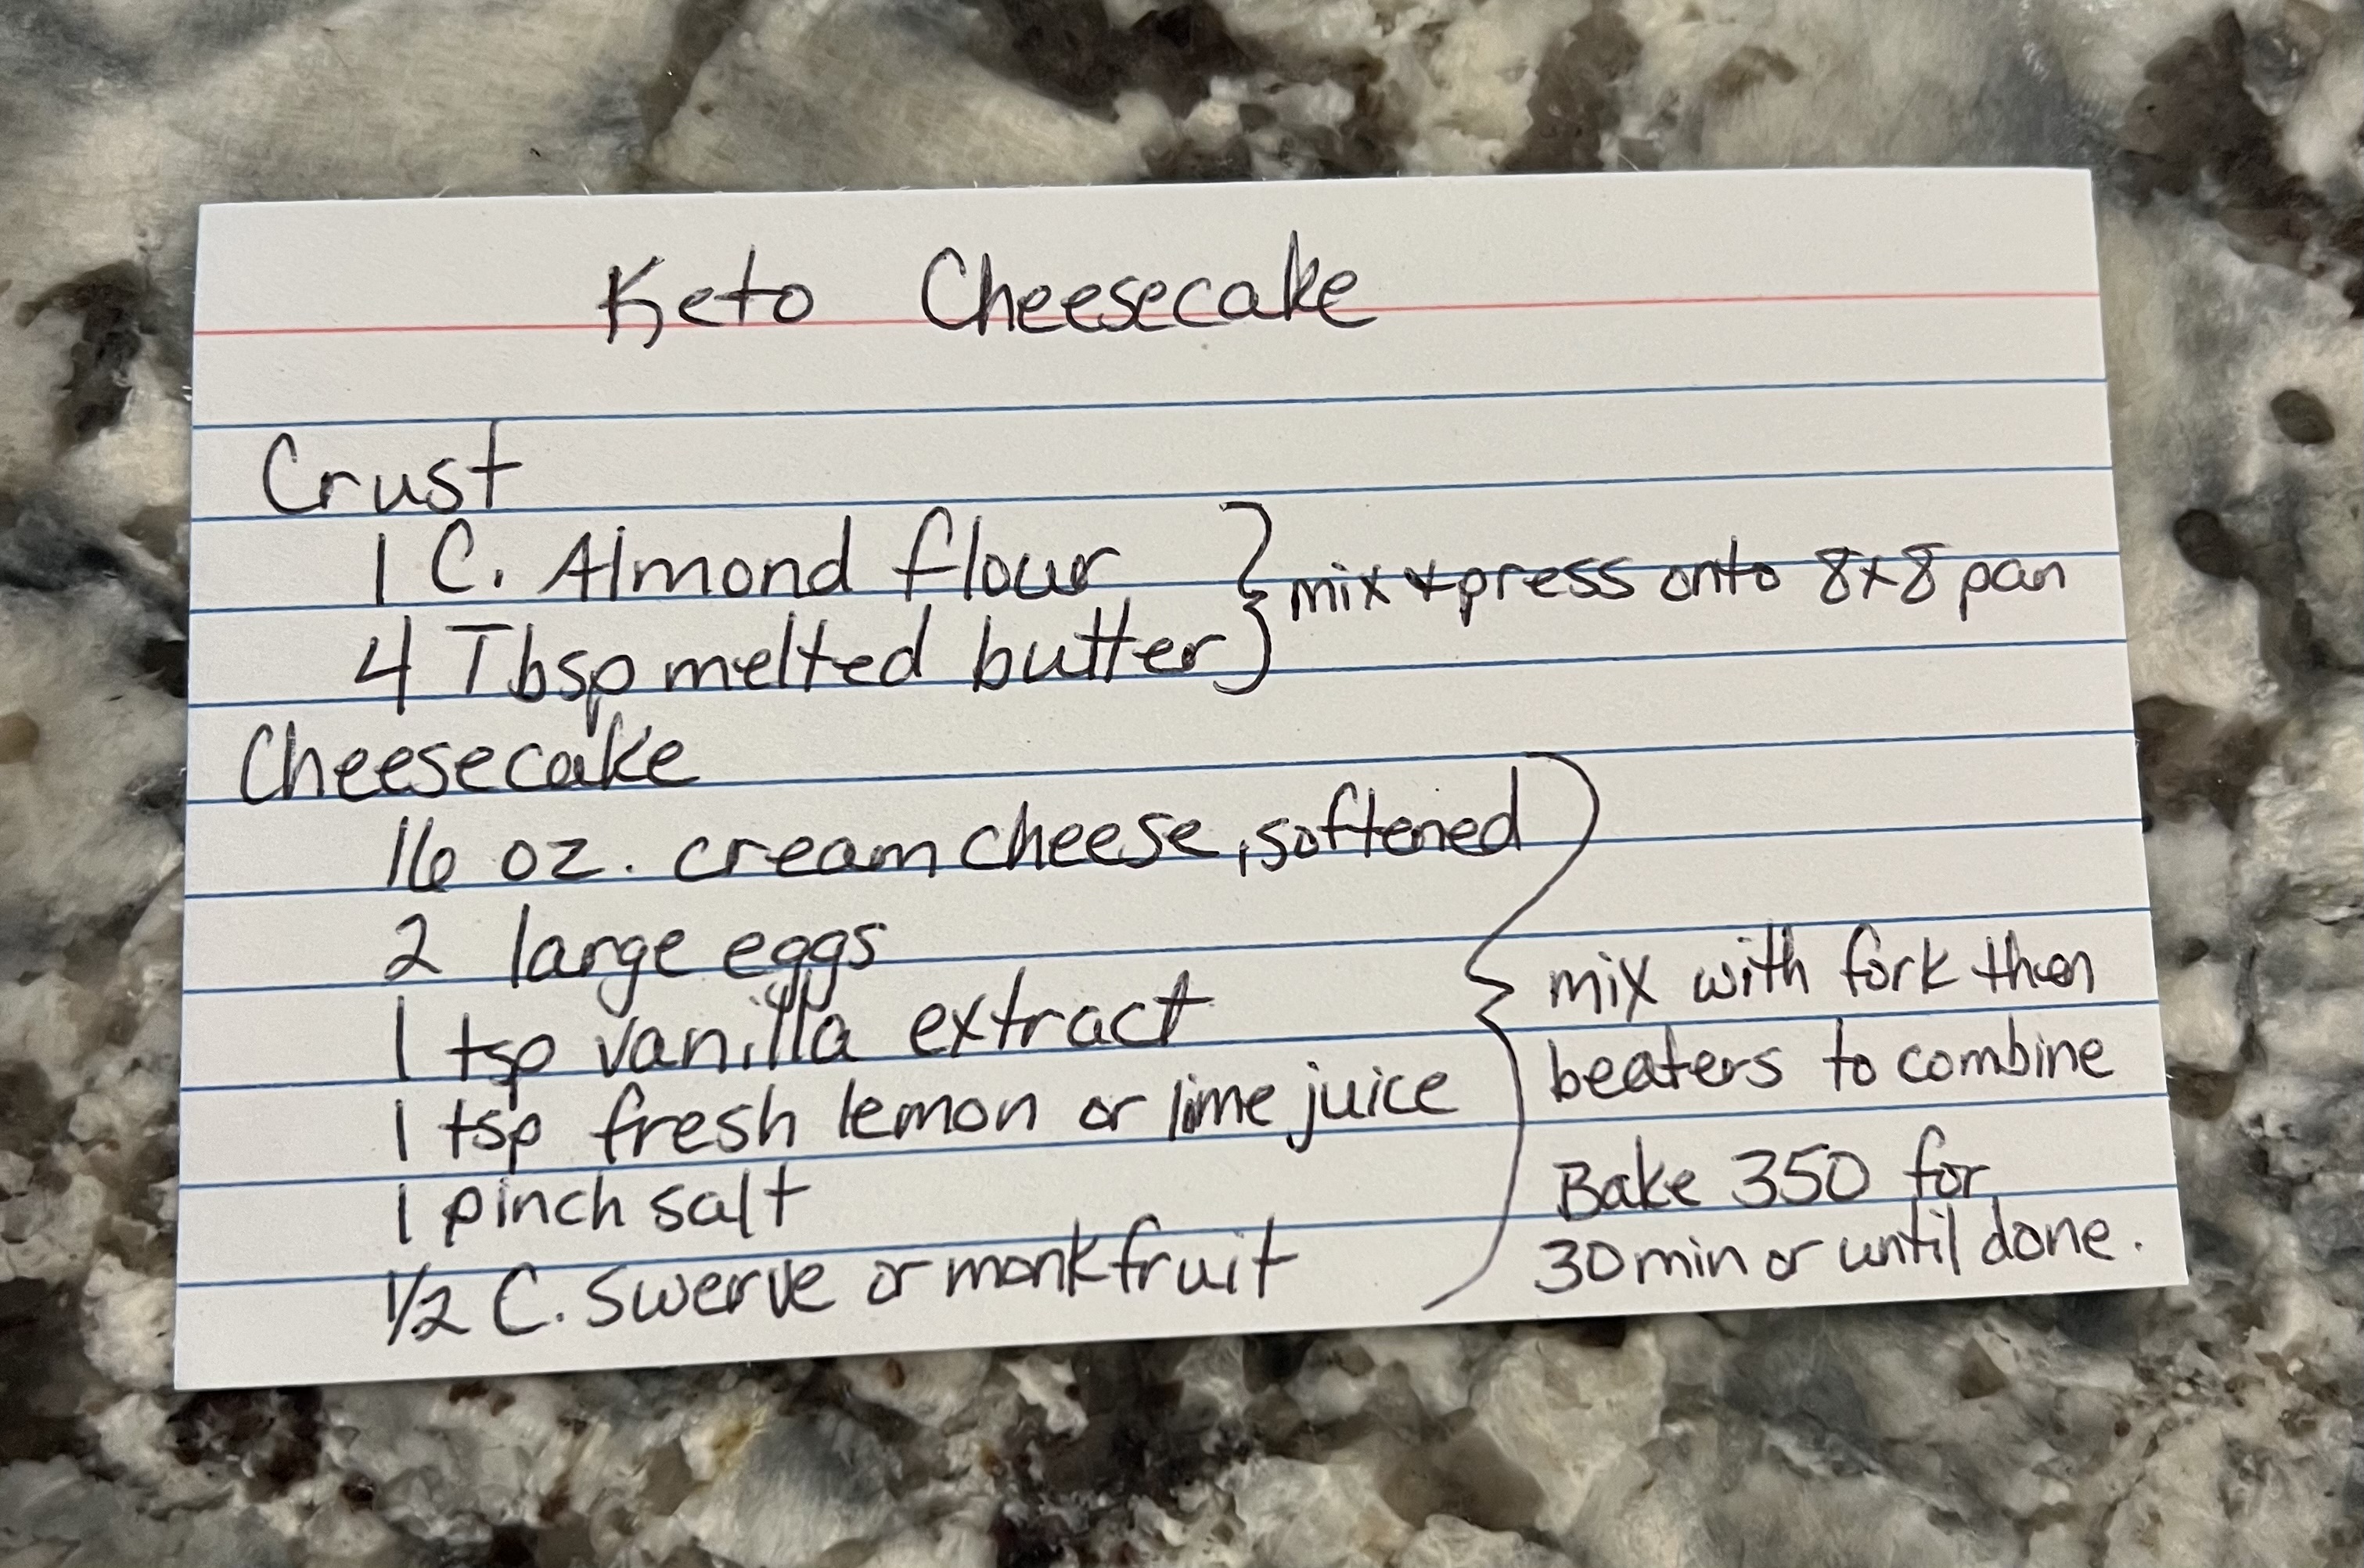 Keto Cheesecake
Crust
1 C. Almond flour
4 Tbsp melted butter
mix + press onto 8x8 pan
Cheesecake
16 oz. cream cheese, softened
2 large eggs
1 tsp vanilla extract
1 tsp fresh lemon or lime juice
1 pinch salt
1/2 C. Swerve or monkfruit
mix with fork then
beaters to combine
Bake 350 for
30 min or until done.